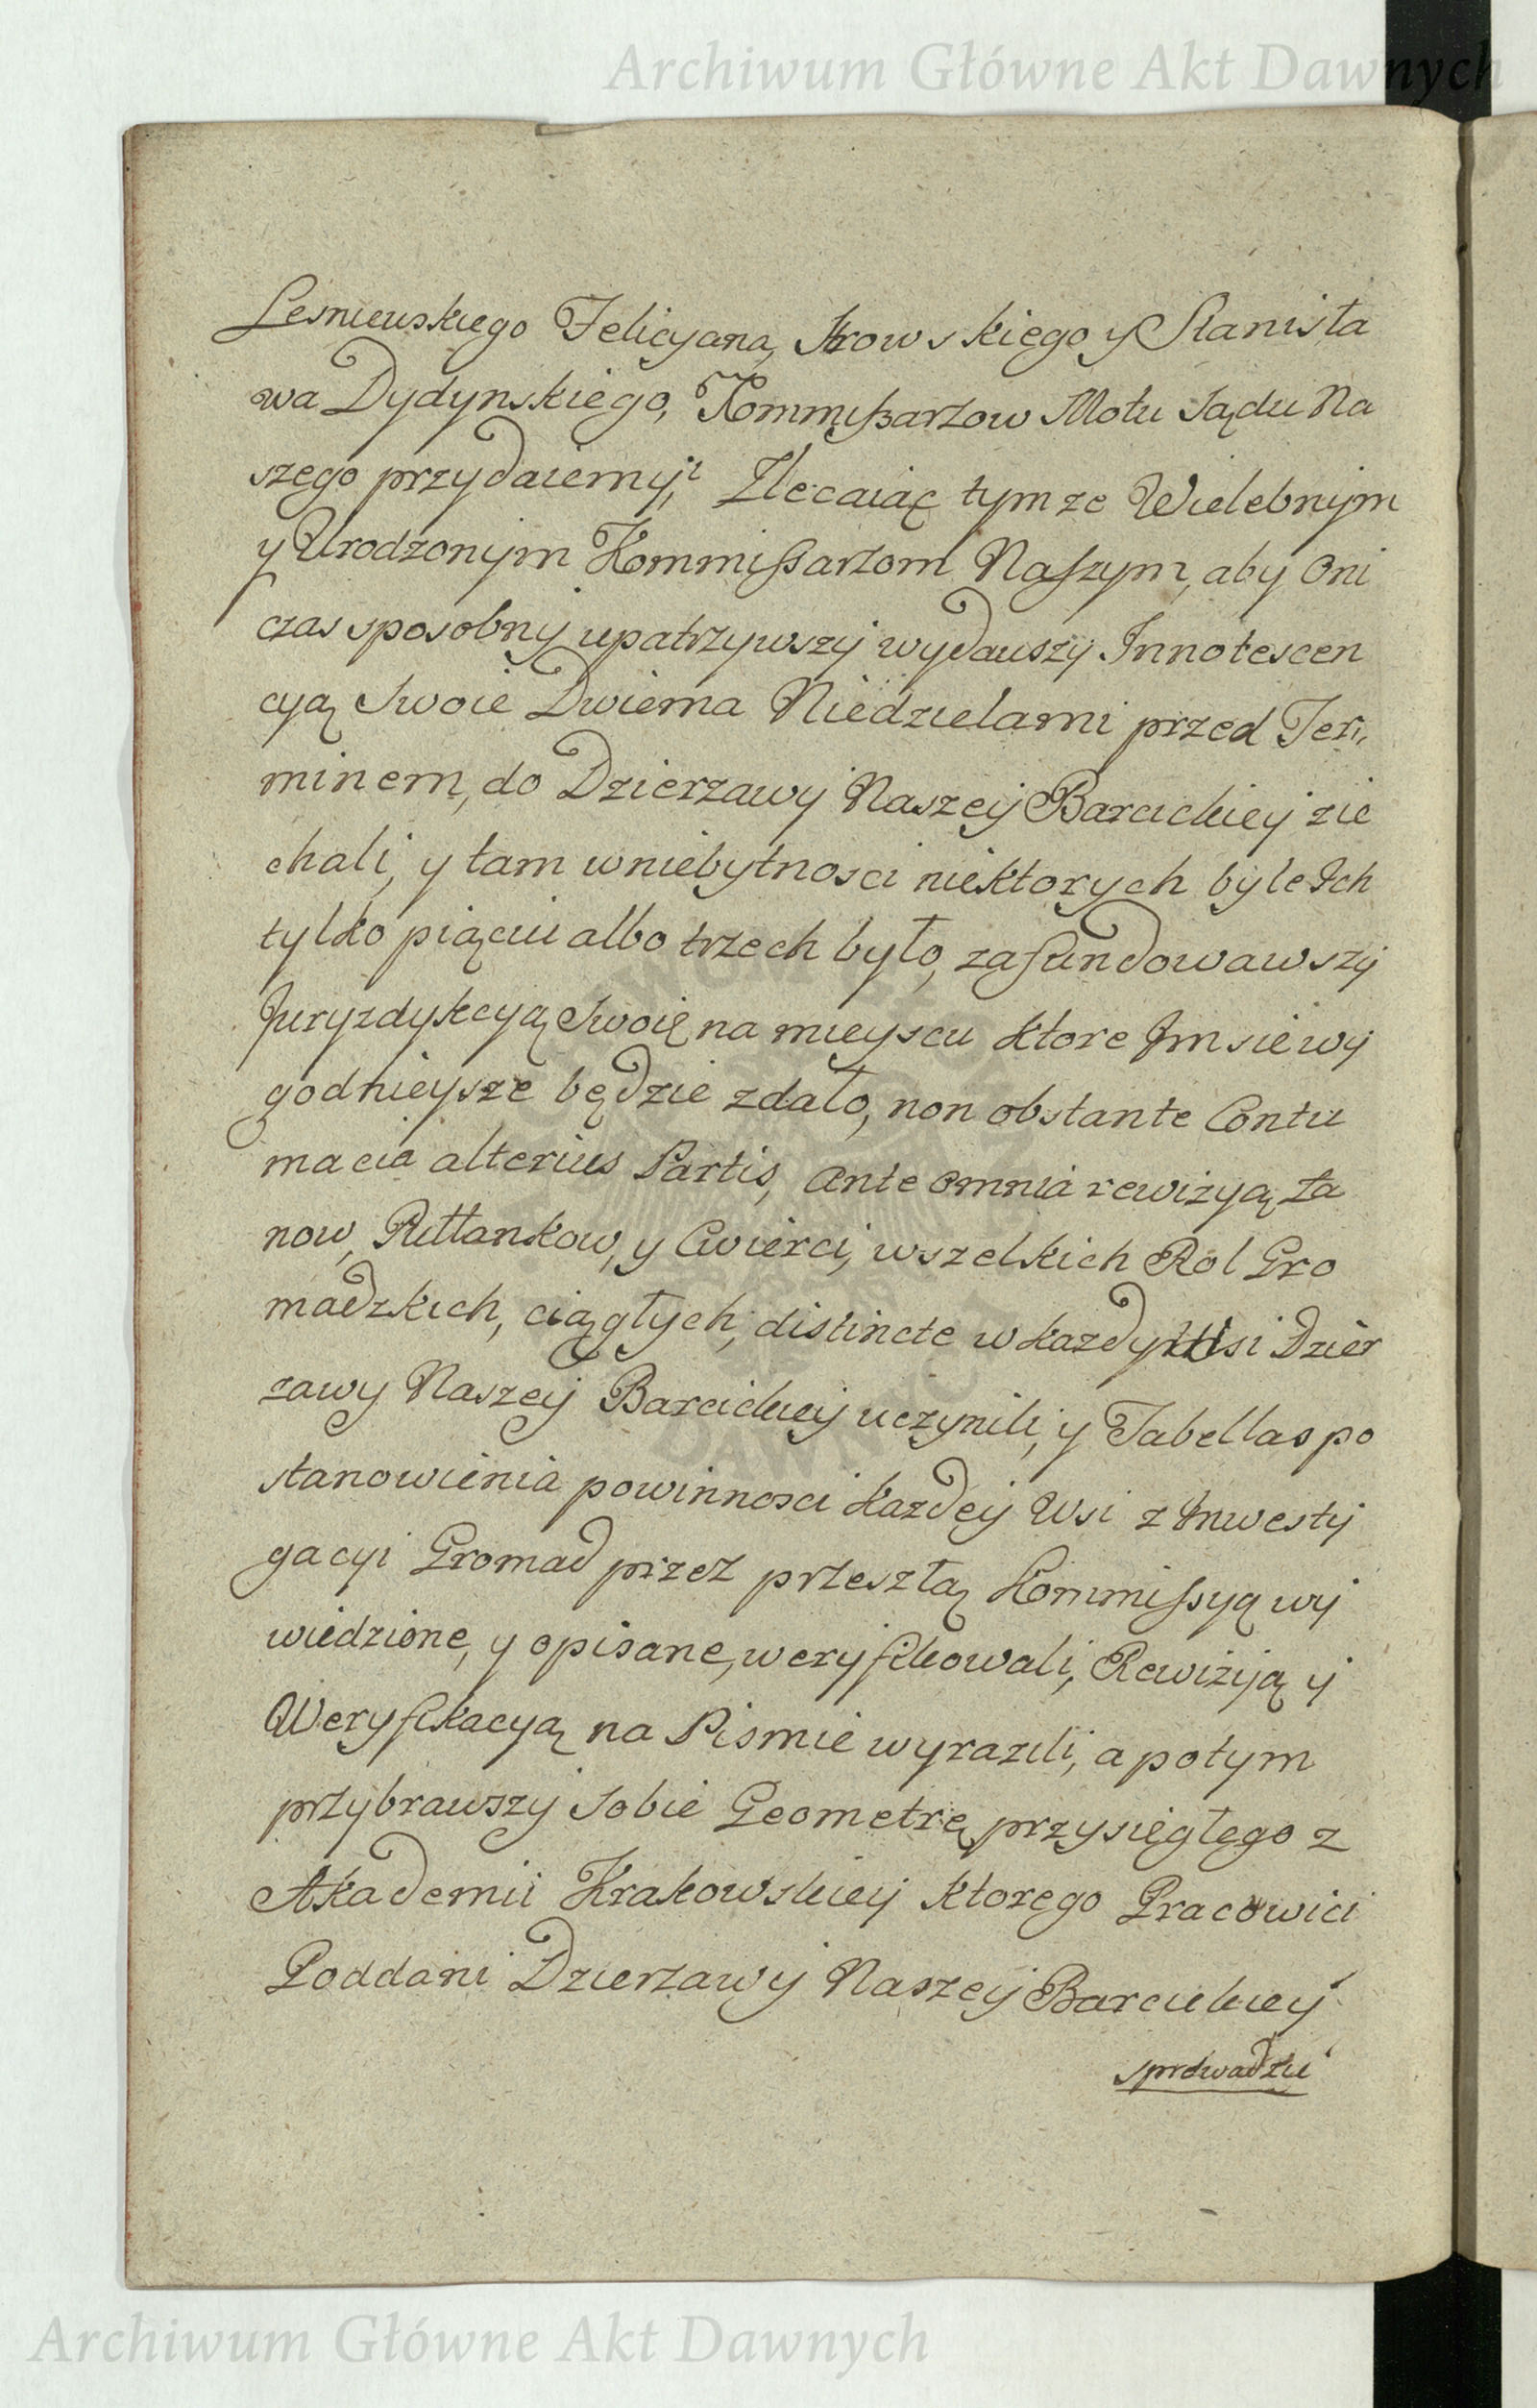 Archiwum Główne Akt Dawnych
Lesniewskiego Felicyana, Krowskiego y Stanisła
wa Dydynskiego, Kommißarzow Motu Sądu Na
szego przydaiemy; Zlecaiąc tymze Wielebnym
y Urodzonym Kommißarzom Naszym, aby Oni
czas sposobny upatrzywszy wydawszy Innotescen
cyą Swoie Dwiema Niedzielami przed Ter,
minem, do Dzierzawy Naszey Barcickiey zie
chali, y tam wniebytnosci niektorych byle Ich
tylko piąciu albo trzech było, zafundowawszy
Juryzdykcyą Swoię na mieyscu ktore Im sie wy
godnieysze będzie zdało, non obstante Contu
macia alterius Partis, Ante omnia rewizyą Ła
now, Pułłankow, y Cwierci, wszelkich Rol Gro
madzkich, ciągłych, distincte w kazdy Wsi Dzier
zawy Naszey Barcickiey uczynili, y Tabellas po
stanowienia powinnosci kazdey Wsi z Inwesty
gacyi Gromad przez przeszłą Kommissyą wy
wiedzione, y opisane, weryfikowali, Rewizyją y
Weryfikacyą na Pismie wyrazili, a potym
przybrawszy Sobie Geometrę przysięgłego z
Akademii Krakowskiey ktorego Pracowici
Poddani Dzierzawy Naszey Barcickiey
sprowadzić
Archiwum Główne Akt Dawnych